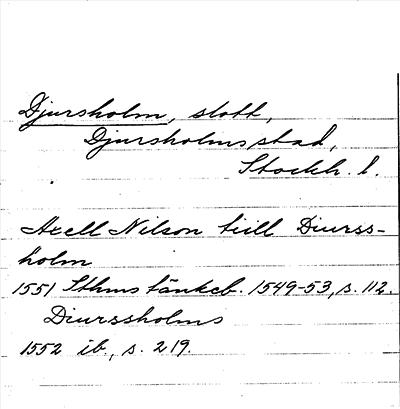 Djursholm, slott,
Djursholms stad,
Stockh. l.
Axell Nilson tiill Diurss-
holm
1551 Sthms tänkeb. 1549-53, s. 112.
Diurssholms
1552 ib., s. 219.